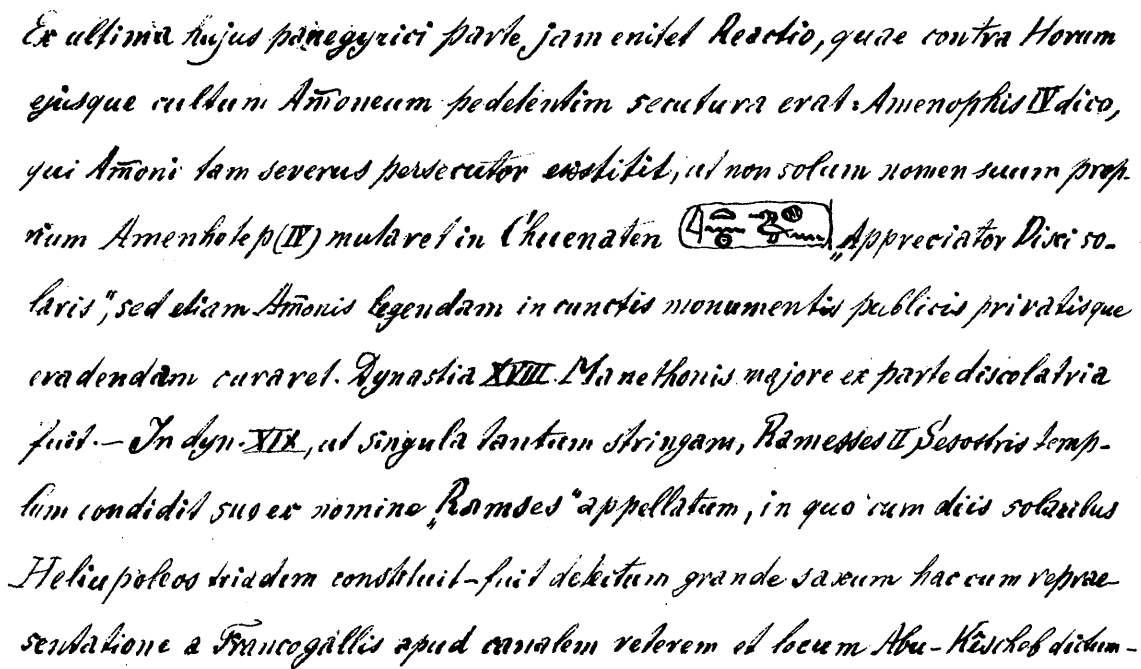 Ex ultima hujus panegyrici parte jam enitet Reactio, quae contra Horum
ejusque cultum Am̄oneum pedetentim secutura erat: Amenophis IV dico,
qui Am̄oni tam severus persecutor exstitit, ut non solum nomen suum prop-
rium Amenhotep (IV) mutaret in Chuenaten „Appreciator Disci so-
laris", sed etiam Am̄onis legendam in cunctis monumentis publicis privatisque
eradendam curaret. Dynastia XVIII. Manethonis majore ex parte discolatria
fuit. — In dyn. XIX, ut singula tantum stringam, Ramesses II Sesostris temp-
lum condidit suo ex nomine „Ramses" appellatum, in quo cum diis solaribus
Heliupoleos triadem constituit - fuit detectum grande saxum hac cum reprae-
sentatione a Francogallis apud canalem veterem et locum Abu-Kêscheb dictum -